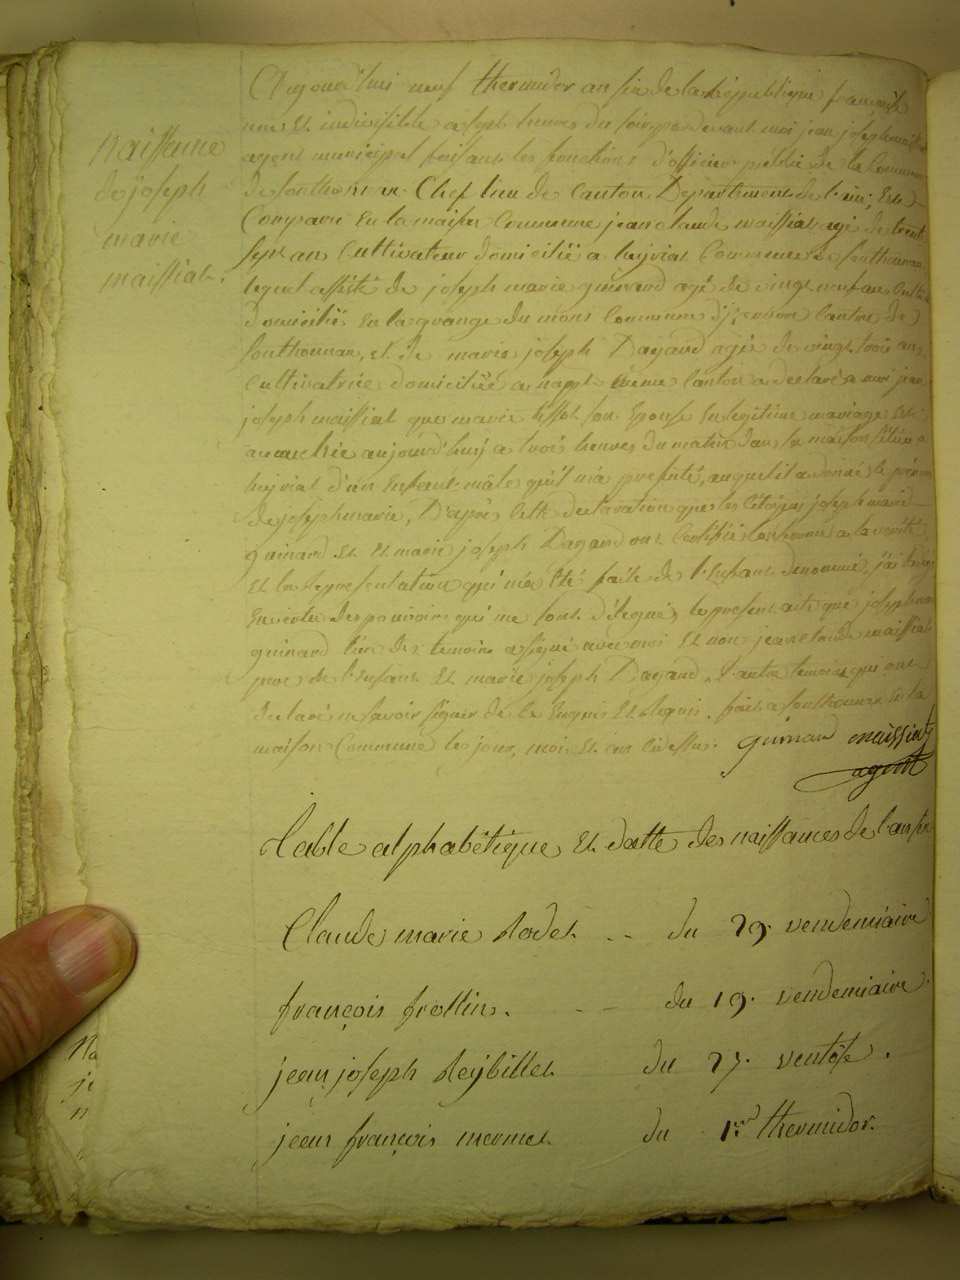 naissance
de joseph
marie
maissiat.
Aujourd'hui neuf thermidor an six de la République française
une et indivisible a sept heures du soir par devant moi jean joseph maissiat
agent municipal faisant les fonctions d'officier public de la Commune
de southonnax Chef lieu de Canton Departement de l'ain, Est
Comparu En la maison Commune jean claude maissiat agé de trente
sept ans Cultivateur domicilié a heyriat Commune de southonnax
lequel assisté de joseph marie guinard agé de vingt neuf ans
domicilié En la grange du mons Commune Canton de
southonnax, et de marie joseph Dagand agée de vingt trois ans
Cultivatrice domiciliée a napt même Canton a declaré a moi jean
joseph maissiat que marie tissot son Epouse En legitime mariage Est
accouchée aujourd'huy a trois heures du matin dans la maison située a
heyriat d'un Enfant mâle qu'il m'a presenté, auquel il a donné le prénom
de joseph marie, D'après Cette declaration que les Citoyens joseph marie
guinard Et Et marie joseph Dagand ont Certifiée Conforme a la verité
Et la Representation qui m'a Eté faite de l'Enfant denommé, j'ai redigé
En vertu des pouvoirs qui me sont délegués, le present acte que joseph marie
guinard l'un des temoins a signé avec moi Et non jean claude maissiat
pere de l'Enfant Et marie joseph Dagand, l'autre temoin qui ont
declaré ne savoir signer de Ce Enquis Et Requis. fait a southonnax En la
maison Commune les jour, mois Et an Cidessus. guinard maissiat
agent
Table alphabétique Et datte des naissances de l'an six
Claude marie Rodet .. du 29. vendemiaire
françois frollin. -- du 19. vendemiaire.
jean joseph Reybillet du 25. ventôse.
jean françois mermet du 1er thermidor.